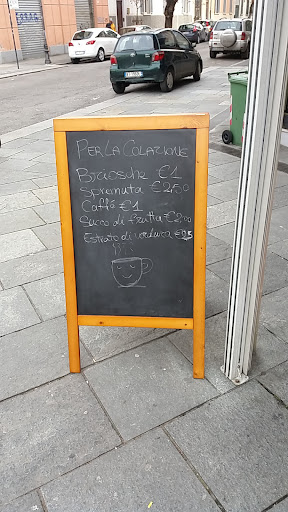 PER LA COLAZIONE
Brioche €1
Spremuta €2,50
Caffè €1
Succo di frutta €2,00
Estratto di verdura €